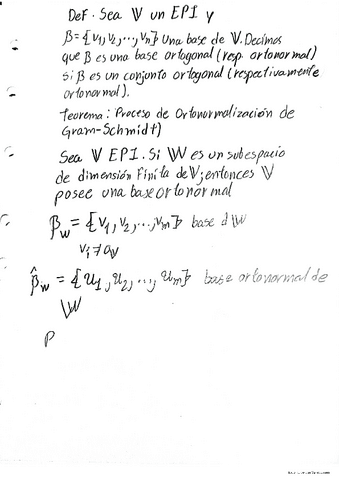 Def. Sea V un EPI y
β = {v₁, v₂, ..., vₙ} una base de V. Decimos
que β es una base ortogonal (resp. ortonormal)
si β es un conjunto ortogonal (respectivamente
ortonormal).
Teorema: (Proceso de Ortonormalización de
Gram-Schmidt)
Sea V EPI. Si W es un subespacio
de dimensión finita de V, entonces V
posee una base ortonormal
β_w = {v₁, v₂, ..., vₘ} base d W
vᵢ ≠ 0ᵥ
β̂_w = {u₁, u₂, ..., uₘ} base ortonormal de
W
P